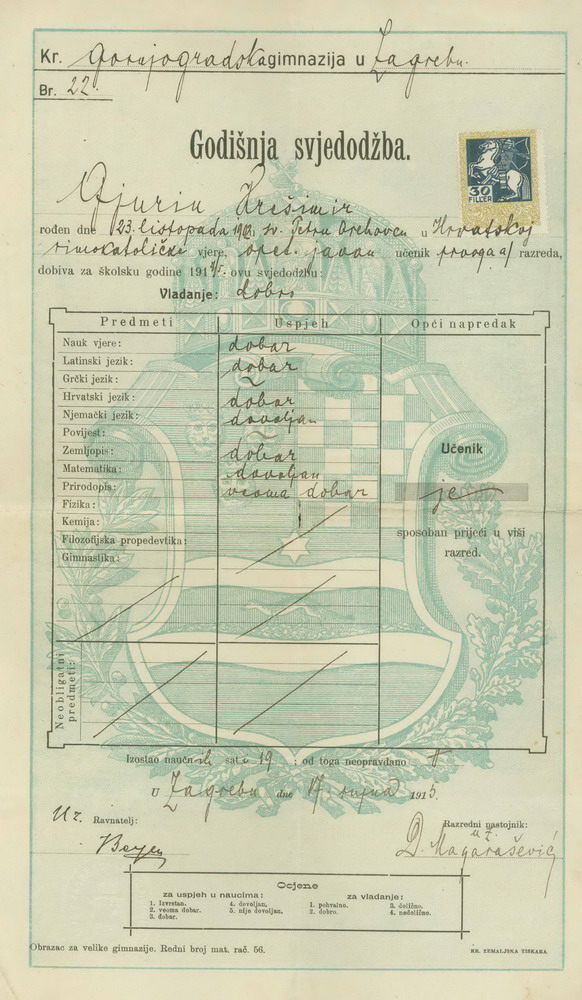 Kr. gornjogradska gimnazija u Zagrebu.
Br. 22.
30
FILLER
Godišnja svjedodžba.
Gjurin Krešimir
rođen dne 23. listopada u sv. Petru Orehovcu u Hrvatskoj
rimokatoličke vjere, javan učenik prvoga a) razreda,
dobiva za školsku godine 1914/5. ovu svjedodžbu:
Vladanje: dobro
Predmeti Uspjeh Opći napredak
Nauk vjere: dobar
Latinski jezik: dobar
Grčki jezik: ~
Hrvatski jezik: dobar
Njemački jezik: dovoljan
Povijest: ~
Zemljopis: dobar
Matematika: dovoljan
Prirodopis: veoma dobar
Fizika:
Kemija:
Filozofijska propedevtika:
Gimnastika:
Učenik
je
sposoban prijeći u viši
razred.
Neobligatni
predmeti:
Izostao naučnih sati 19; od toga neopravdano
U Zagrebu dne 17. rujna 1915.
Ravnatelj:
Razredni nastojnik:
D. Magarašević
Ocjene
za uspjeh u naucima: za vladanje:
1. Izvrstan. 4. dovoljan. 1. pohvalno. 3. dolično.
2. veoma dobar. 5. nije dovoljan. 2. dobro. 4. nedolično.
3. dobar.
Obrazac za velike gimnazije. Redni broj mat. rač. 56.
KR. ZEMALJSKA TISKARA